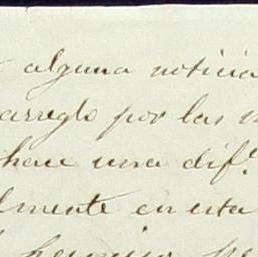 alguna noticia
arreglo por las
hace una dif.ª
lmente en esta